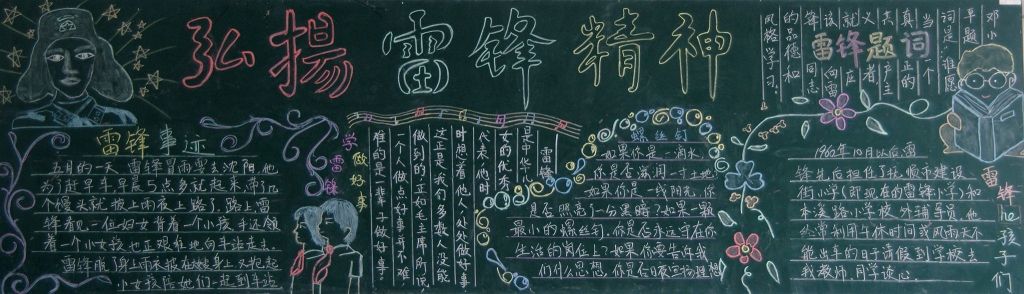 弘揚雷锋精神
雷锋题词
邓小平题
词:谁愿
当一个
真正的
共产主
义者
就应
该向雷
锋同志
的品德和
风格学习。
雷锋事迹
五月的一天,雷锋冒雨要去沈阳,他
为了赶早车,早晨5点多就起来,带了几
个馒头就披上雨衣上路了,路上,雷
锋看见一位妇女背着一个小孩,手还领
着一个小女孩也正艰难地向车站走去。
雷锋脱了身上雨衣披在大嫂身上,又抱起
小女孩陪她们一起到车站
学雷锋
做好事
雷锋
是中华儿
女的优秀
代表,他时
时想着他人,处处做好事
过正是我们多数人没能
做到的,正如毛主席所说
一个人做点好事并不难,
难的是一辈子做好事。
螺丝钉
如果你是一滴水,
你是否滋润一寸土地
如果你是一线阳光,你
是否照亮了一分黑暗?如果一颗
最小的螺丝钉,你是否永远守在你
生活的岗位上?如果你要告诉我
们什么思想,你是否日夜宣扬
1960年10月以后,雷
锋先后担任了抚顺市建设
街小学(即现在的雷锋小学)和
本溪路小学校外辅导员,他
经常利用午休时间或风雨天不
能出车的日子请假到学校去
找教师、同学谈心。
雷锋he孩子们